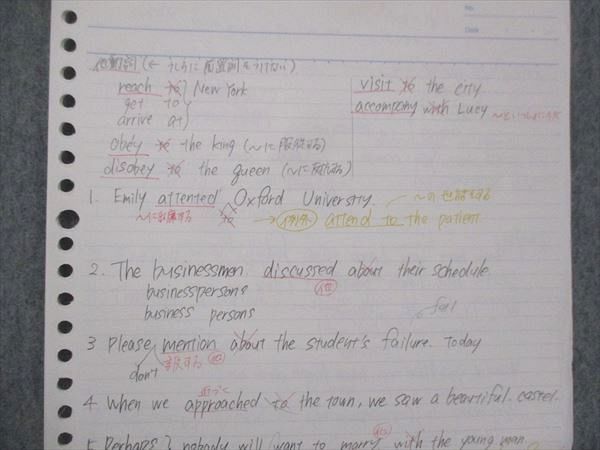 No.
Date
他動詞 (← うしろに前置詞をつけない)
reach to New York
get to
arrive at
visit to the city
accompany with Lucy ~といっしょに行く
obey to the king (~に服従する)
disobey to the queen (~に反抗する)
1. Emily attented Oxford University. ~の世話をする
~に出席する to → attend to the patient
2. The businessmen discussed about their schedule.
businesspersons 他
business persons
fail
3 Please mention about the student's failure. Today
don't 他
4. When we approached to the town, we saw a beautiful castel.
5. Perhaps nobody will want to marry with the young man